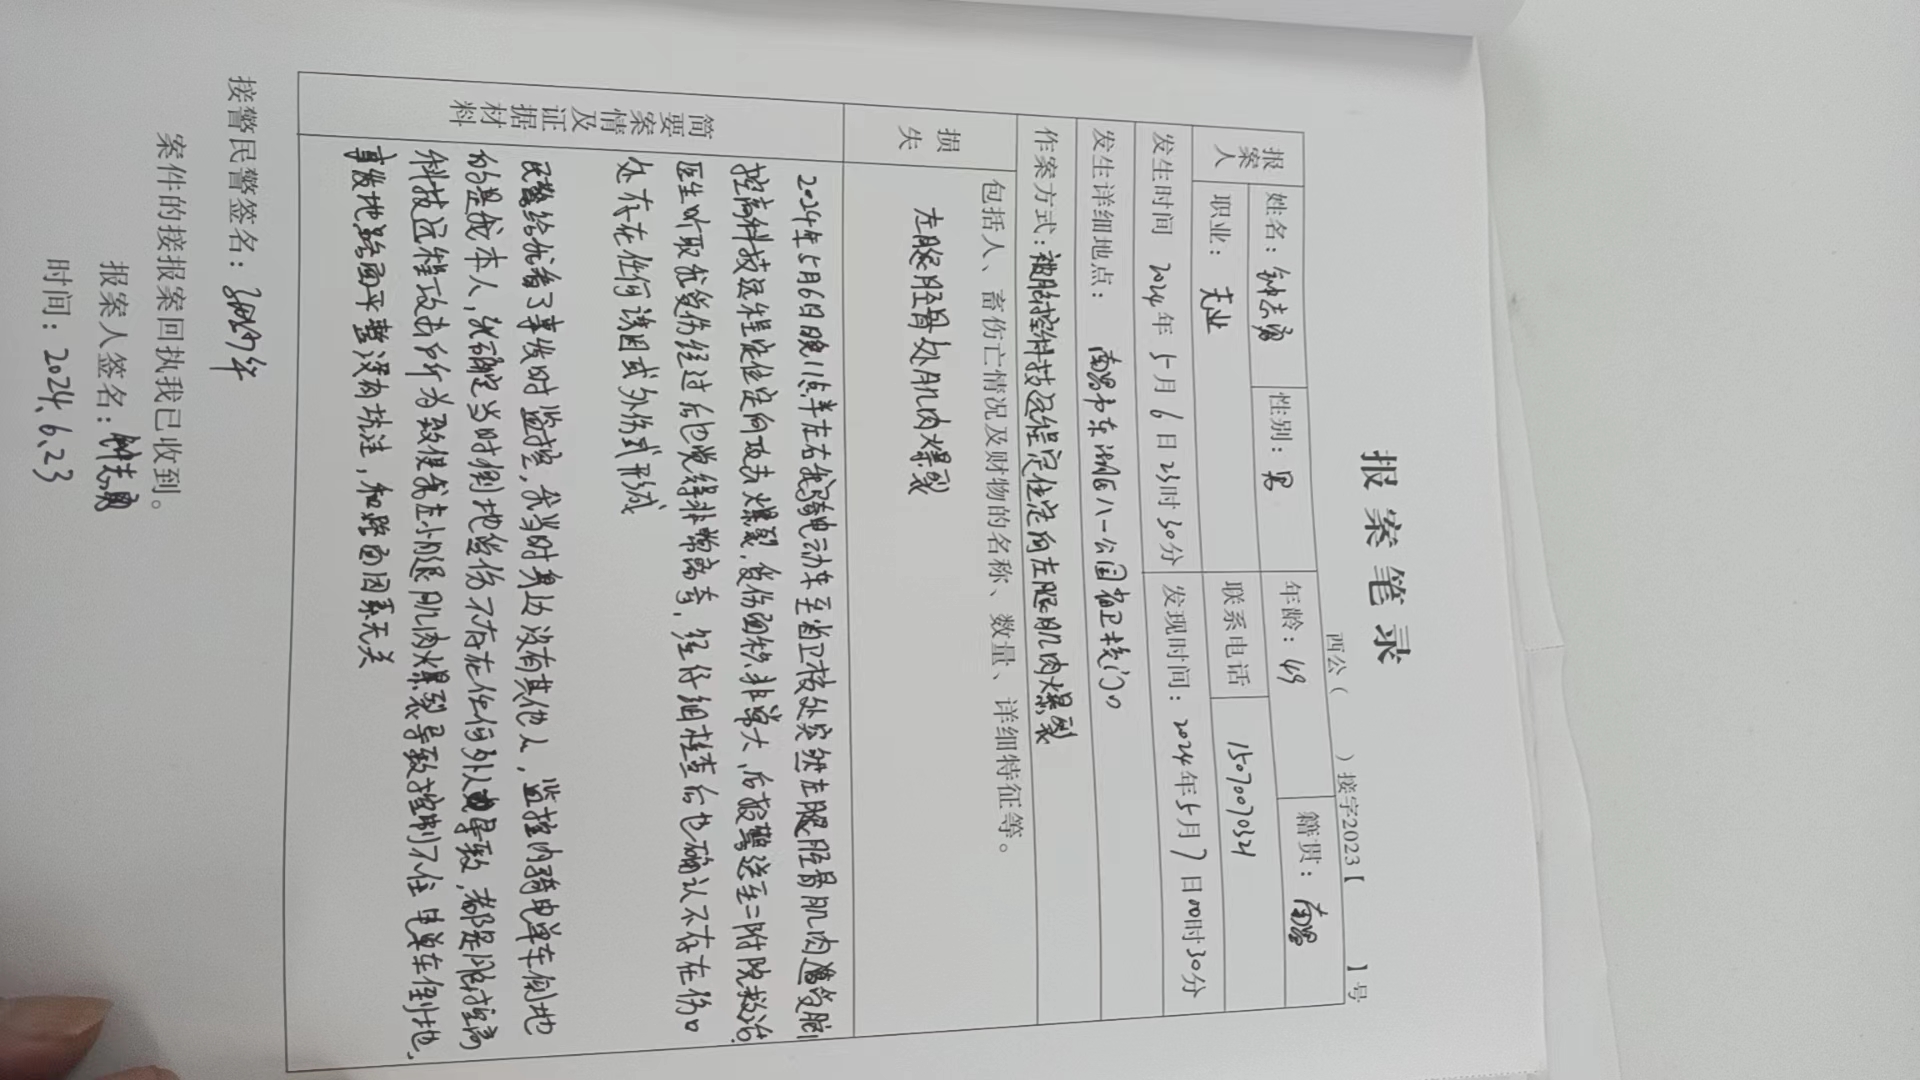 报案笔录
西公（ ）接字2023【 】号
报案人 姓名：钟志勇 性别：男 年龄：49 籍贯：南昌
职业：无业 联系电话 15070070321
发生时间 2024年5月6日23时30分 发现时间：2024年5月7日00时30分
发生详细地点： 南昌市东湖区八一公园省卫校门口
作案方式：被脑控科技远程定位定向左腿肌肉爆裂
损失 包括人、畜伤亡情况及财物的名称、数量、详细特征等。
左腿胫骨处肌肉爆裂
简要案情及证据材料
2024年5月6日晚11点半左右我骑电动车至省卫校处突然左腿胫骨肌肉遭受脑
控高科技远程定位定向攻击爆裂，受伤面积非常大，后报警送至二附院救治，
医生听取我受伤经过后也觉得非常离奇，经仔细检查后也确认不存在伤口
处存在任何诱因或外伤式形成
民警给我看了事发时监控，我当时身边没有其他人，监控内骑电单车倒地
的是我本人，我确定当时倒地受伤不存在任何外人导致，都是脑控高
科技远程攻击所为致使我左小腿肌肉爆裂导致控制不住电单车倒地，
事发地路面平整没有坑洼，和路面因素无关
接警民警签名：
案件的接报案回执我已收到。
报案人签名：钟志勇
时间：2024.6.23